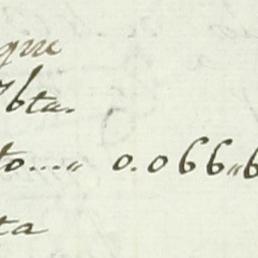 que
bta.
to...„ 0.066„6
ta